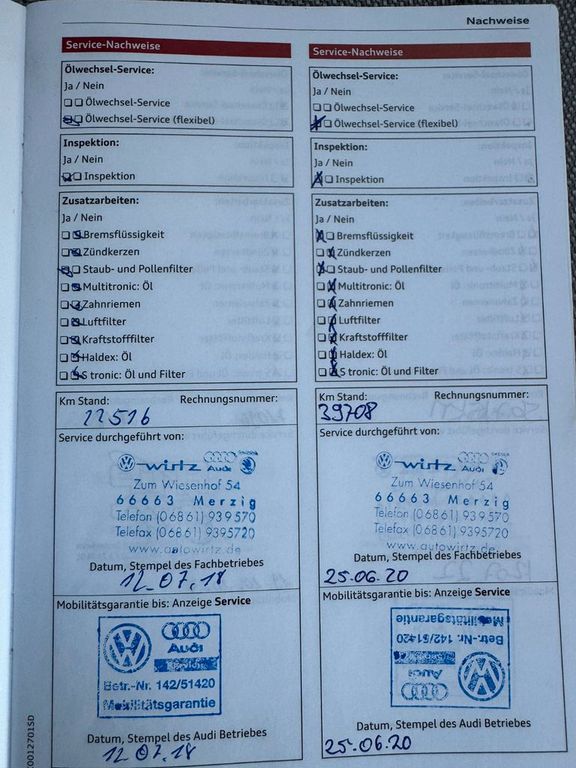 Nachweise
Service-Nachweise
Ölwechsel-Service:
Ja / Nein
Ölwechsel-Service
Ölwechsel-Service (flexibel)
Inspektion:
Ja / Nein
Inspektion
Zusatzarbeiten:
Ja / Nein
Bremsflüssigkeit
Zündkerzen
Staub- und Pollenfilter
Multitronic: Öl
Zahnriemen
Luftfilter
Kraftstofffilter
Haldex: Öl
S tronic: Öl und Filter
Km Stand: Rechnungsnummer:
Service durchgeführt von:
wirtz Audi
Zum Wiesenhof 54
66663 Merzig
Telefon (06861) 939570
Telefax (06861) 9395720
www.autowirtz.de
Datum, Stempel des Fachbetriebes
12.07.18
Mobilitätsgarantie bis: Anzeige Service
Audi
Service
Betr.-Nr. 142/51420
Mobilitätsgarantie
Datum, Stempel des Audi Betriebes
12.07.18
Service-Nachweise
Ölwechsel-Service:
Ja / Nein
Ölwechsel-Service
Ölwechsel-Service (flexibel)
Inspektion:
Ja / Nein
Inspektion
Zusatzarbeiten:
Ja / Nein
Bremsflüssigkeit
Zündkerzen
Staub- und Pollenfilter
Multitronic: Öl
Zahnriemen
Luftfilter
Kraftstofffilter
Haldex: Öl
S tronic: Öl und Filter
Km Stand: Rechnungsnummer:
39708
Service durchgeführt von:
wirtz Audi
Zum Wiesenhof 54
66663 Merzig
Telefon (06861) 939570
Telefax (06861) 9395720
www.autowirtz.de
Datum, Stempel des Fachbetriebes
25.06.20
Mobilitätsgarantie bis: Anzeige Service
Mobilitätsgarantie
Betr.-Nr. 142/51420
Service
Audi
Datum, Stempel des Audi Betriebes
25.06.20